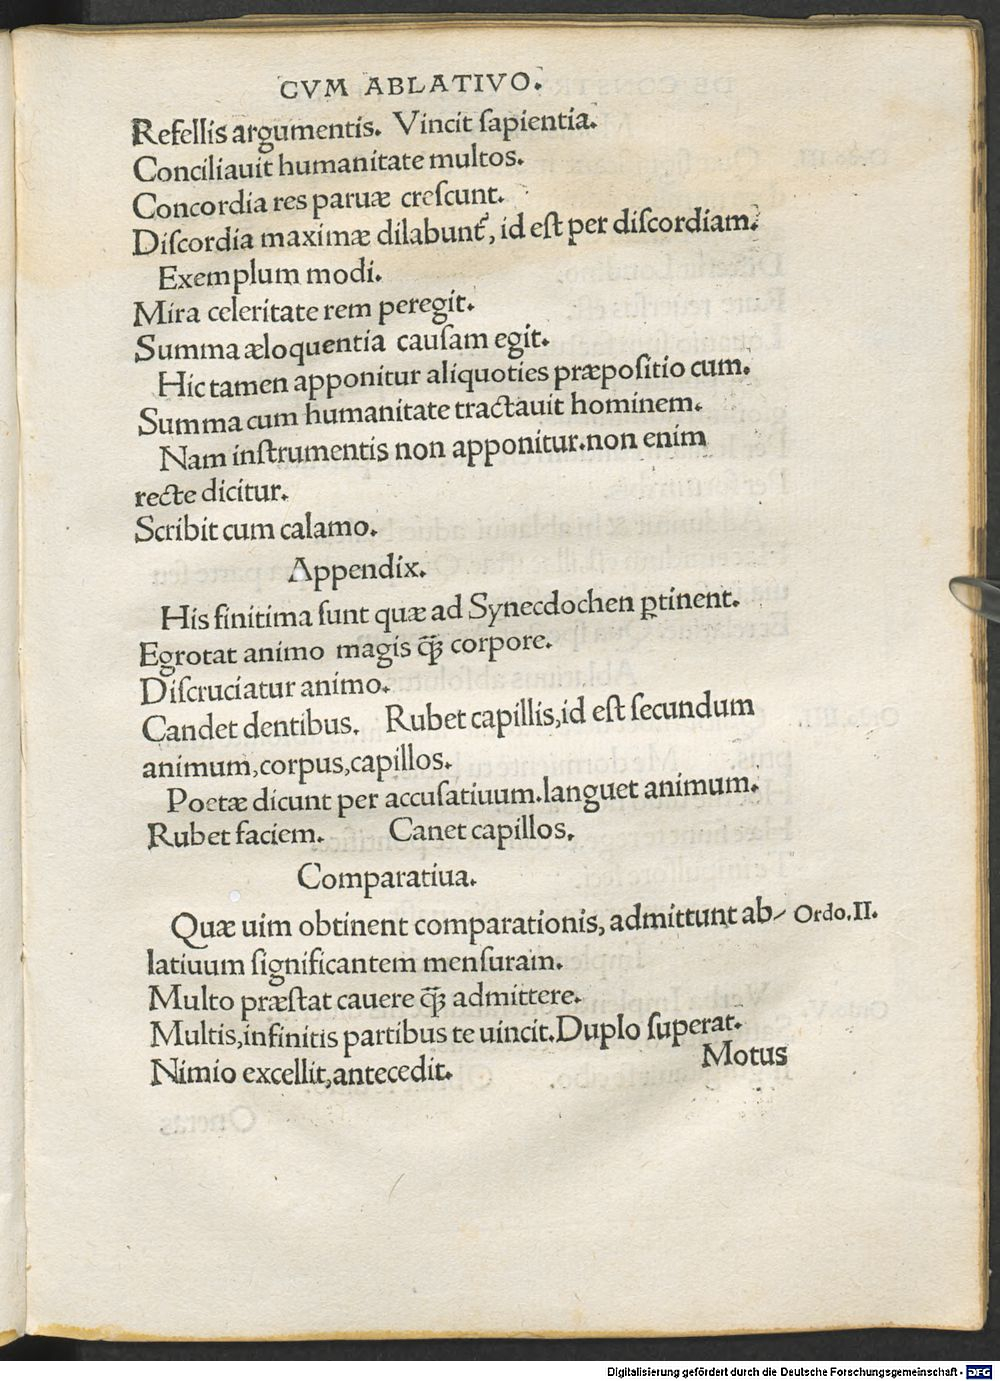 CVM ABLATIVO.
Refellis argumentis. Vincit ſapientia.
Conciliauit humanitate multos.
Concordia res paruæ creſcunt.
Diſcordia maximæ dilabunt᷑, id eſt per diſcordiam.
Exemplum modi.
Mira celeritate rem peregit.
Summa æloquentia cauſam egit.
Hic tamen apponitur aliquoties præpoſitio cum.
Summa cum humanitate tractauit hominem.
Nam inſtrumentis non apponitur.non enim
recte dicitur.
Scribit cum calamo.
Appendix.
His finitima ſunt quæ ad Synecdochen ꝑtinent.
Egrotat animo magis q̃ꝫ corpore.
Diſcruciatur animo.
Candet dentibus. Rubet capillis,id eſt ſecundum
animum,corpus,capillos.
Poetæ dicunt per accuſatiuum.languet animum.
Rubet faciem. Canet capillos.
Comparatiua.
Quæ uim obtinent comparationis, admittunt ab⸗ Ordo.II.
latiuum ſignificantem menſuram.
Multo præſtat cauere q̃ꝫ admittere.
Multis,infinitis partibus te uincit.Duplo ſuperat.
Nimio excellit,antecedit.
Motus
Digitalisierung gefördert durch die Deutsche Forschungsgemeinschaft - DFG